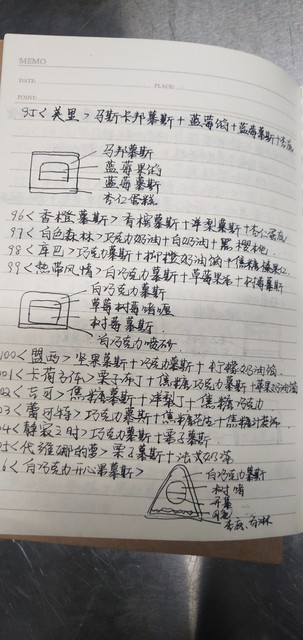 MEMO
DATE
PLACE
POINT
95<美里>马斯卡邦慕斯+蓝莓馅+蓝莓慕斯+杏蛋
马邦慕斯
蓝莓果馅
蓝莓慕斯
杏仁蛋糕
96<香橙慕斯>香槟慕斯+洋梨慕斯+杏仁蛋糕
97<白色森林>巧克力奶油+白奶油+黑樱桃
98<库巴>巧克力慕斯+柠橙奶油馅+焦糖榛果仁
99<热带风情>白巧克力慕斯+草莓果冻+树莓慕斯
白巧克力慕斯
草莓树莓啫喱
树莓慕斯
白巧克力喷砂
100<盟西>坚果慕斯+巧克力慕斯+柠檬奶油馅
01<卡荷子依>栗子布丁+焦糖巧克力慕斯+苹果奶油馅
02<可可>焦糖慕斯+洋梨丁+焦糖巧克力
03<蕾可特>巧克力慕斯+焦糖
04<静寂之时>巧克力慕斯+栗子慕斯
05<代维娜的梦>栗子慕斯+法式奶冻
6<白巧克力开心果慕斯>
白巧克力慕斯
树啫
开慕